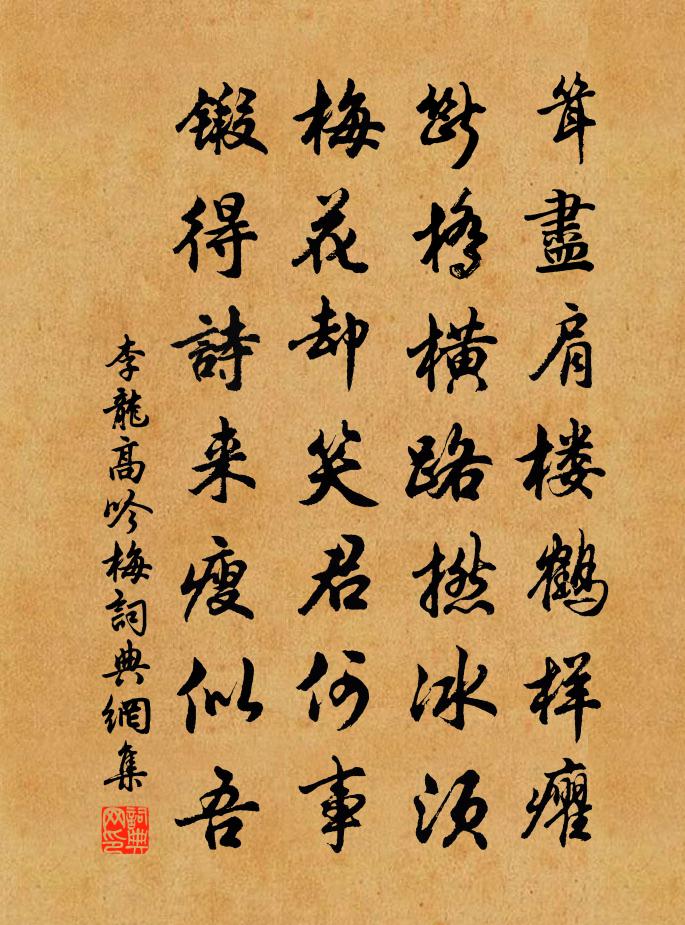 耸盡肩楼鶴样癯
斷橋横路撚冰須
梅花却笑君何事
鍛得詩来瘦似吾
李龍高吟梅詞典網集
詞典网印